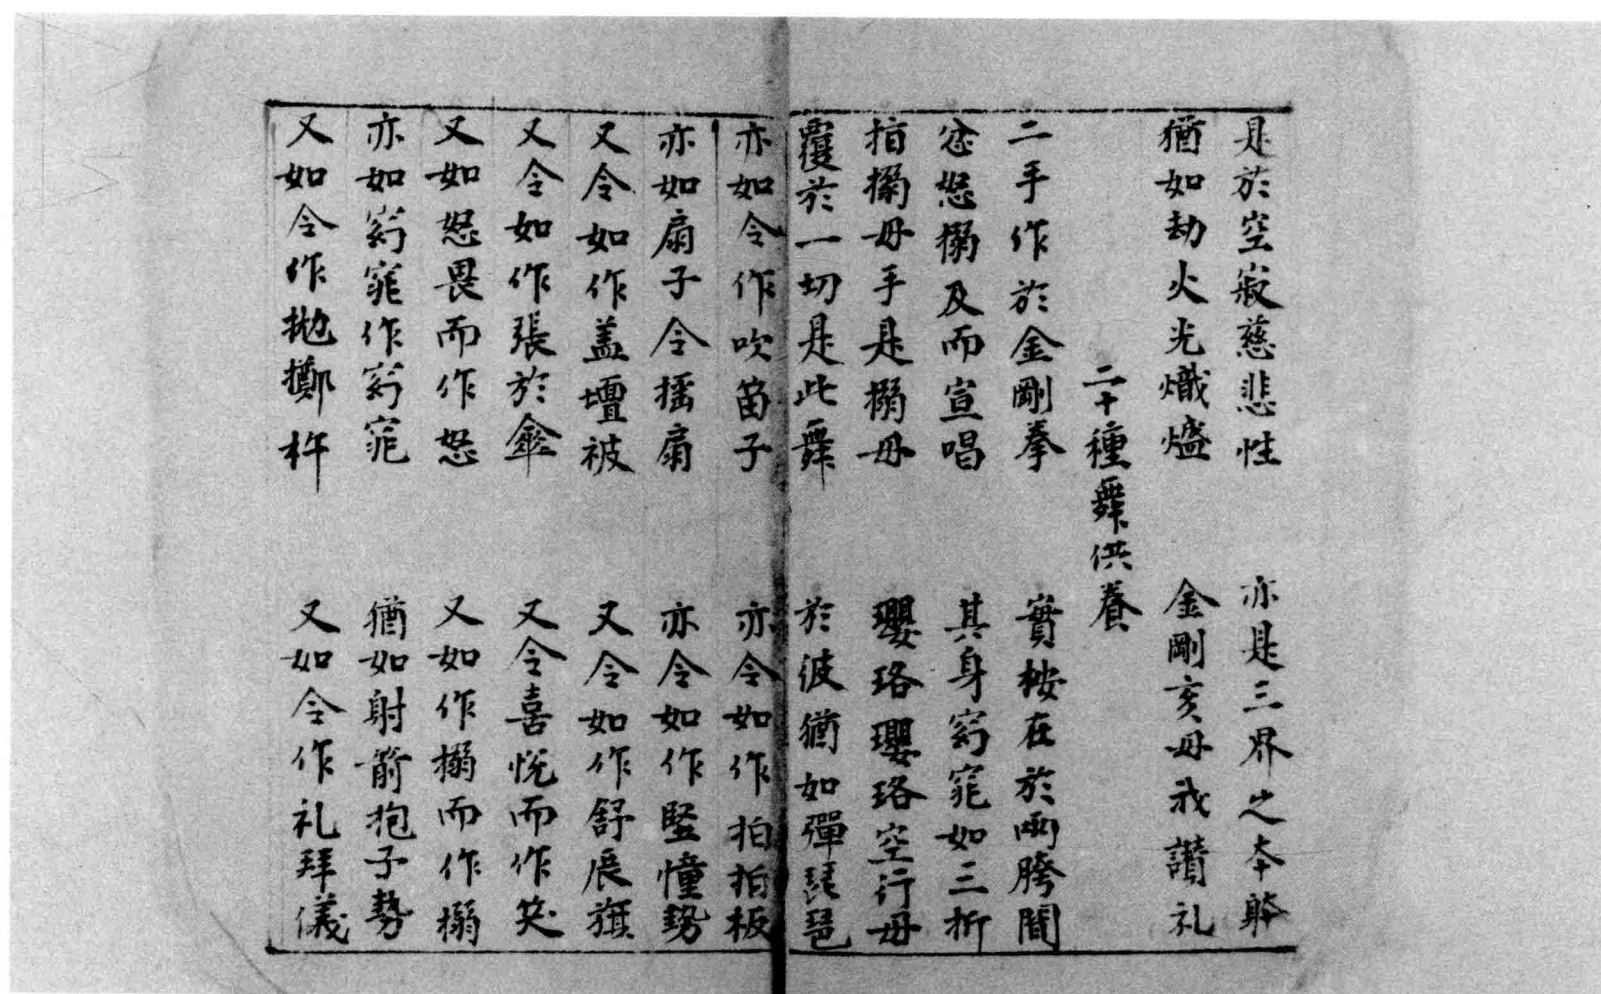 是於空寂慈悲性　亦是三界之本躰
猶如劫火光熾盛　金剛亥母我讃礼
二十種舞供養
二手作於金剛拳　實桉在於兩胯間
忿怒搦及而宣唱　其身窈窕如三折
指搦毋手是搦毋　瓔珞瓔珞空行毋
覆於一切是此舞　於彼猶如彈琵琶
亦如令作吹笛子　亦令如作拍拍板
亦如扇子令揺扇　亦令如作堅幢勢
又令如作盖壇被　又令如作舒展旗
又令如作張於傘　又令喜悅而作笑
又如怒畏而作怒　又如作搦而作搦
亦如窈窕作窈窕　猶如射箭抱子勢
又如令作抛擲杵　又如令作礼拜儀